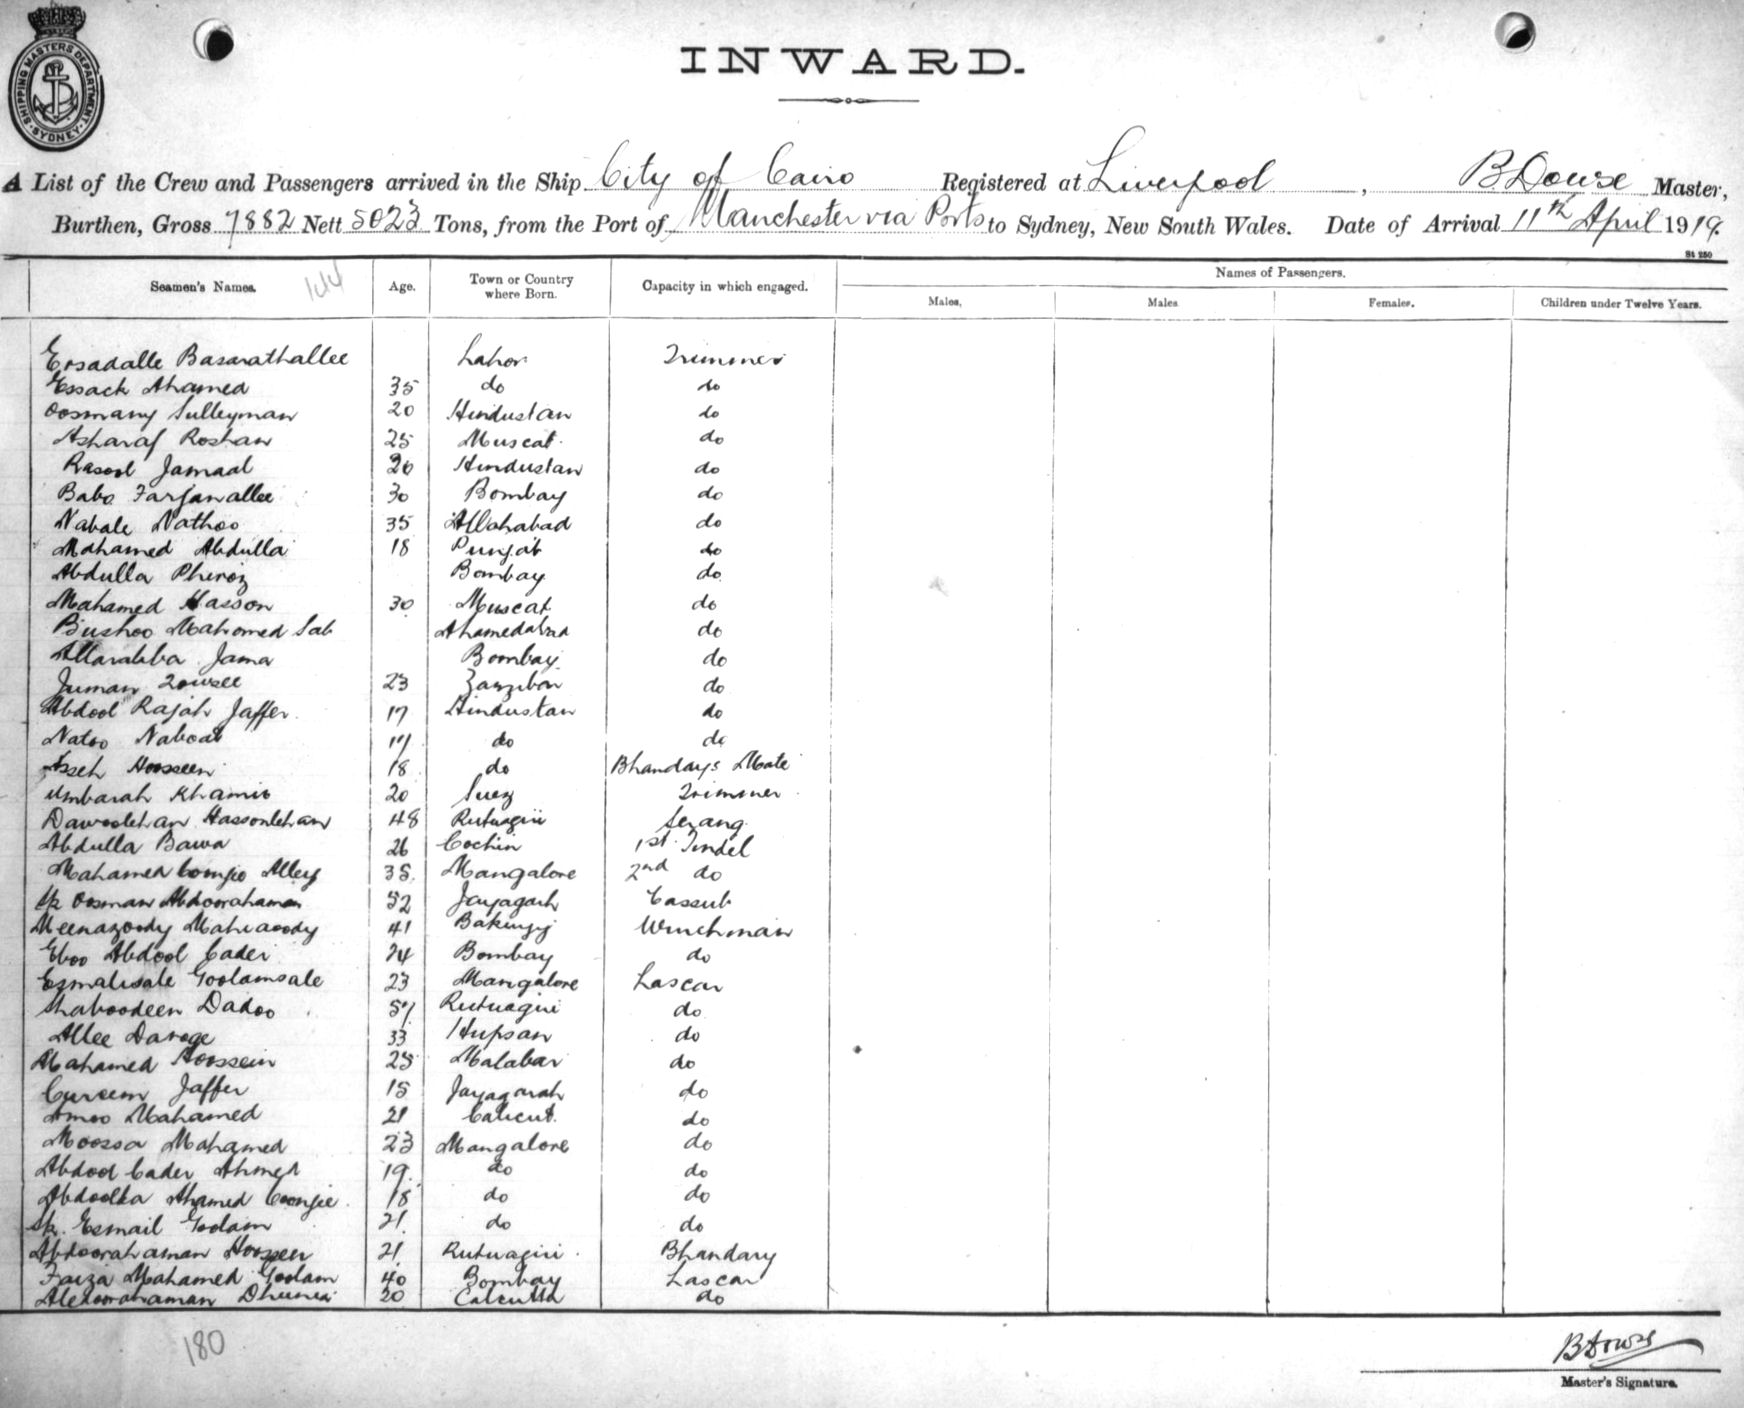 SHIPPING MASTERS DEPARTMENT SYDNEY
INWARD.
A List of the Crew and Passengers arrived in the Ship City of Cairo Registered at Liverpool, B Dowse Master,
Burthen, Gross 7882 Nett 5023 Tons, from the Port of Manchester via Ports to Sydney, New South Wales. Date of Arrival 11th April 1919.
St 250
Seamen's Names. 144 Age. Town or Country where Born. Capacity in which engaged. Names of Passengers.
Males. Males Females. Children under Twelve Years.
Ersadalle Basarathallee Lahor Trimmer
Essack Ahamed 35 do do
Oosmany Sulleyman 20 Hindustan do
Asharaf Roshan 25 Muscat do
Rasool Jamaal 20 Hindustan do
Baba Farjanallee 30 Bombay do
Nabale Nathoo 35 Allahabad do
Mahamed Abdulla 18 Punjab do
Abdulla Pheroz Bombay do
Mahamed Hasson 30 Muscat do
Bushoo Mahomed Sab Ahamedabad do
Allarakba Jama Bombay do
Juman 23 Zanzibar do
Abdool Rajah Jaffer 17 Hindustan do
Natoo Naboat 17 do do
Hoosseen 18 do Bhandays Mate
Umbarah Khamis 20 Suez Trimmer
48 Rutnagiri Serang
Abdulla Bawa 26 Cochin 1st Tindel
Mahamed Coonjee Alley 35 Mangalore 2nd do
Sk Oosman Abdoorahaman 52 Jayagarh Cassub
41 Winchman
Eboo Abdool Cader 24 Bombay do
Esmalsale Goolamsale 23 Mangalore Lascar
Shaboodeen Dadoo 57 Rutnagiri do
Allee Daroge 33 do
Mahamed Hoossein 25 Malabar do
Cureem Jaffer 18 Jayagarah do
Amoo Mahamed 21 Calicut do
Moossa Mahamed 23 Mangalore do
Abdool Cader Ahmed 19 do do
Abdoolla Ahamed Coonjee 18 do do
Sk. Esmail Goolam 21 do do
Abdoorahaman Hoosseen 21 Rutnagiri Bhandary
Faiza Mahamed Goolam 40 Bombay Lascar
Abdoorahaman 20 Calcutta do
180
B Dowse
Master's Signature.